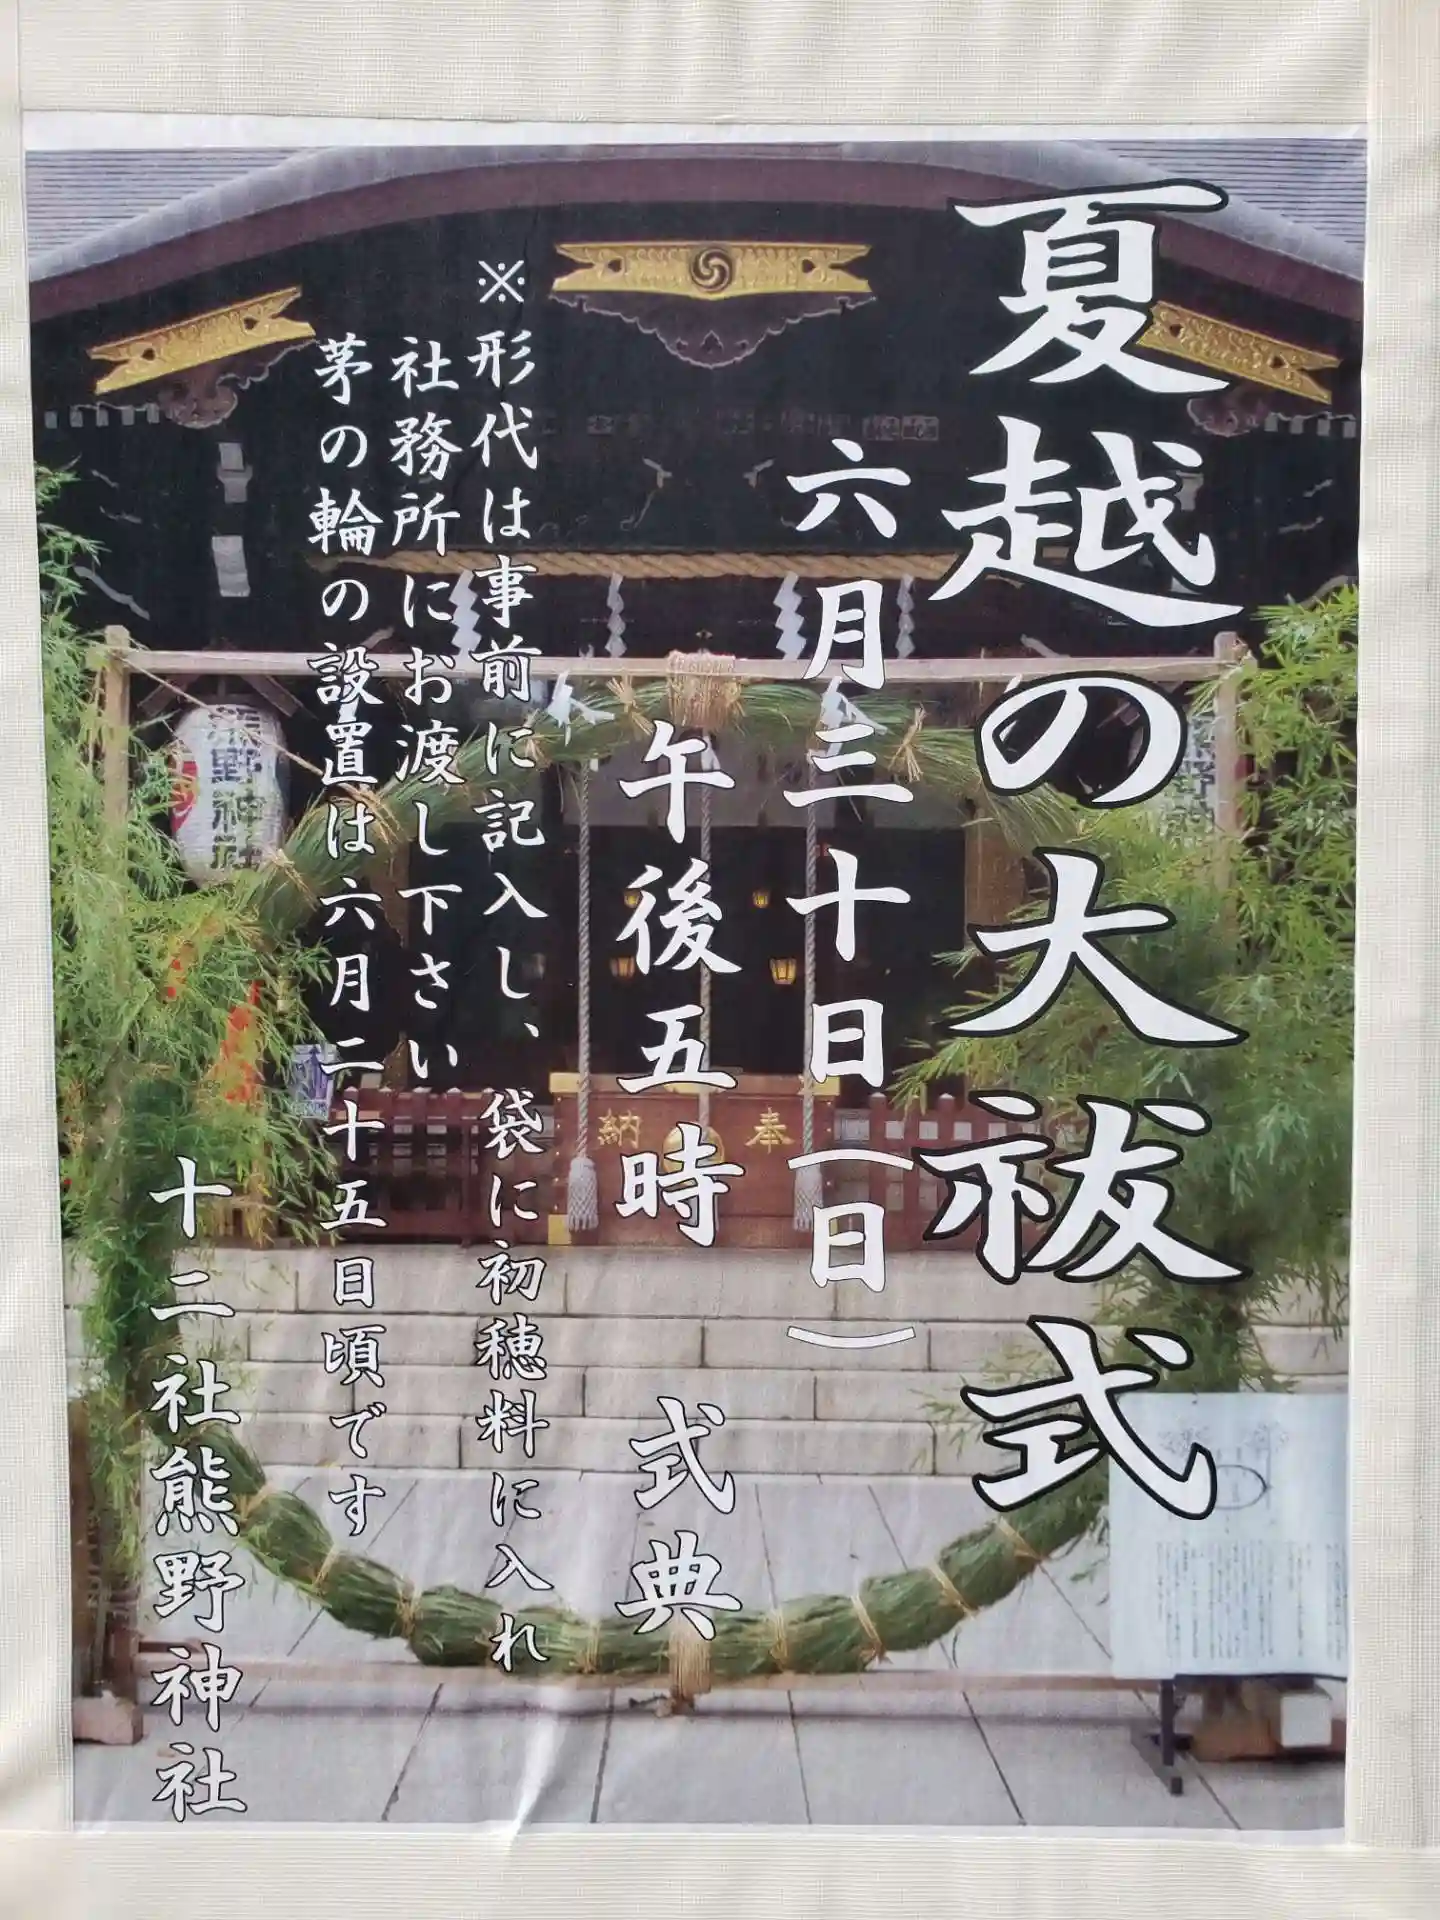 夏越の大祓式
六月三十日（日）
午後五時　式典
※形代は事前に記入し、袋に初穂料に入れ
社務所にお渡し下さい
茅の輪の設置は六月二十五日頃です
十二社熊野神社
熊野神社
奉納